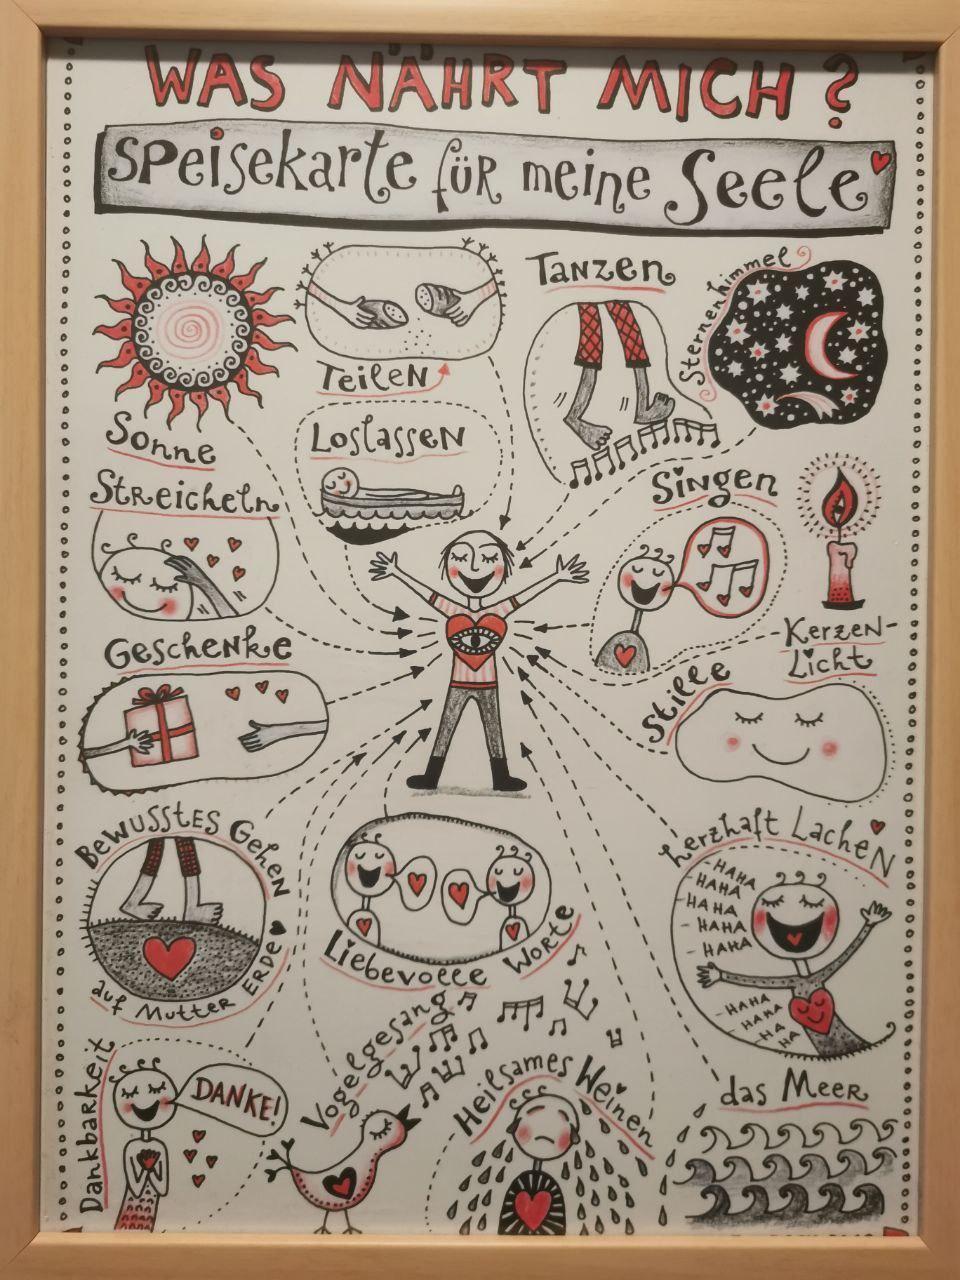 WAS NÄHRT MICH?
SPEISEKARTE FÜR MEINE SEELE
SONNE
TEILEN
TANZEN
Sternenhimmel
LOSLASSEN
STREICHELN
SINGEN
KERZEN-
LICHT
GESCHENKE
Stille
BEWUSSTES GEHEN
auf MUTTER ERDE
LIEBEVOLLE WORTE
herzhaft LACHEN
HAHA
HAHA
HAHA
HAHA
HAHA
HAHA
HAHA
HA
HA
Dankbarkeit
DANKE!
Vogelgesang
HEILSAMES WEINEN
das MEER